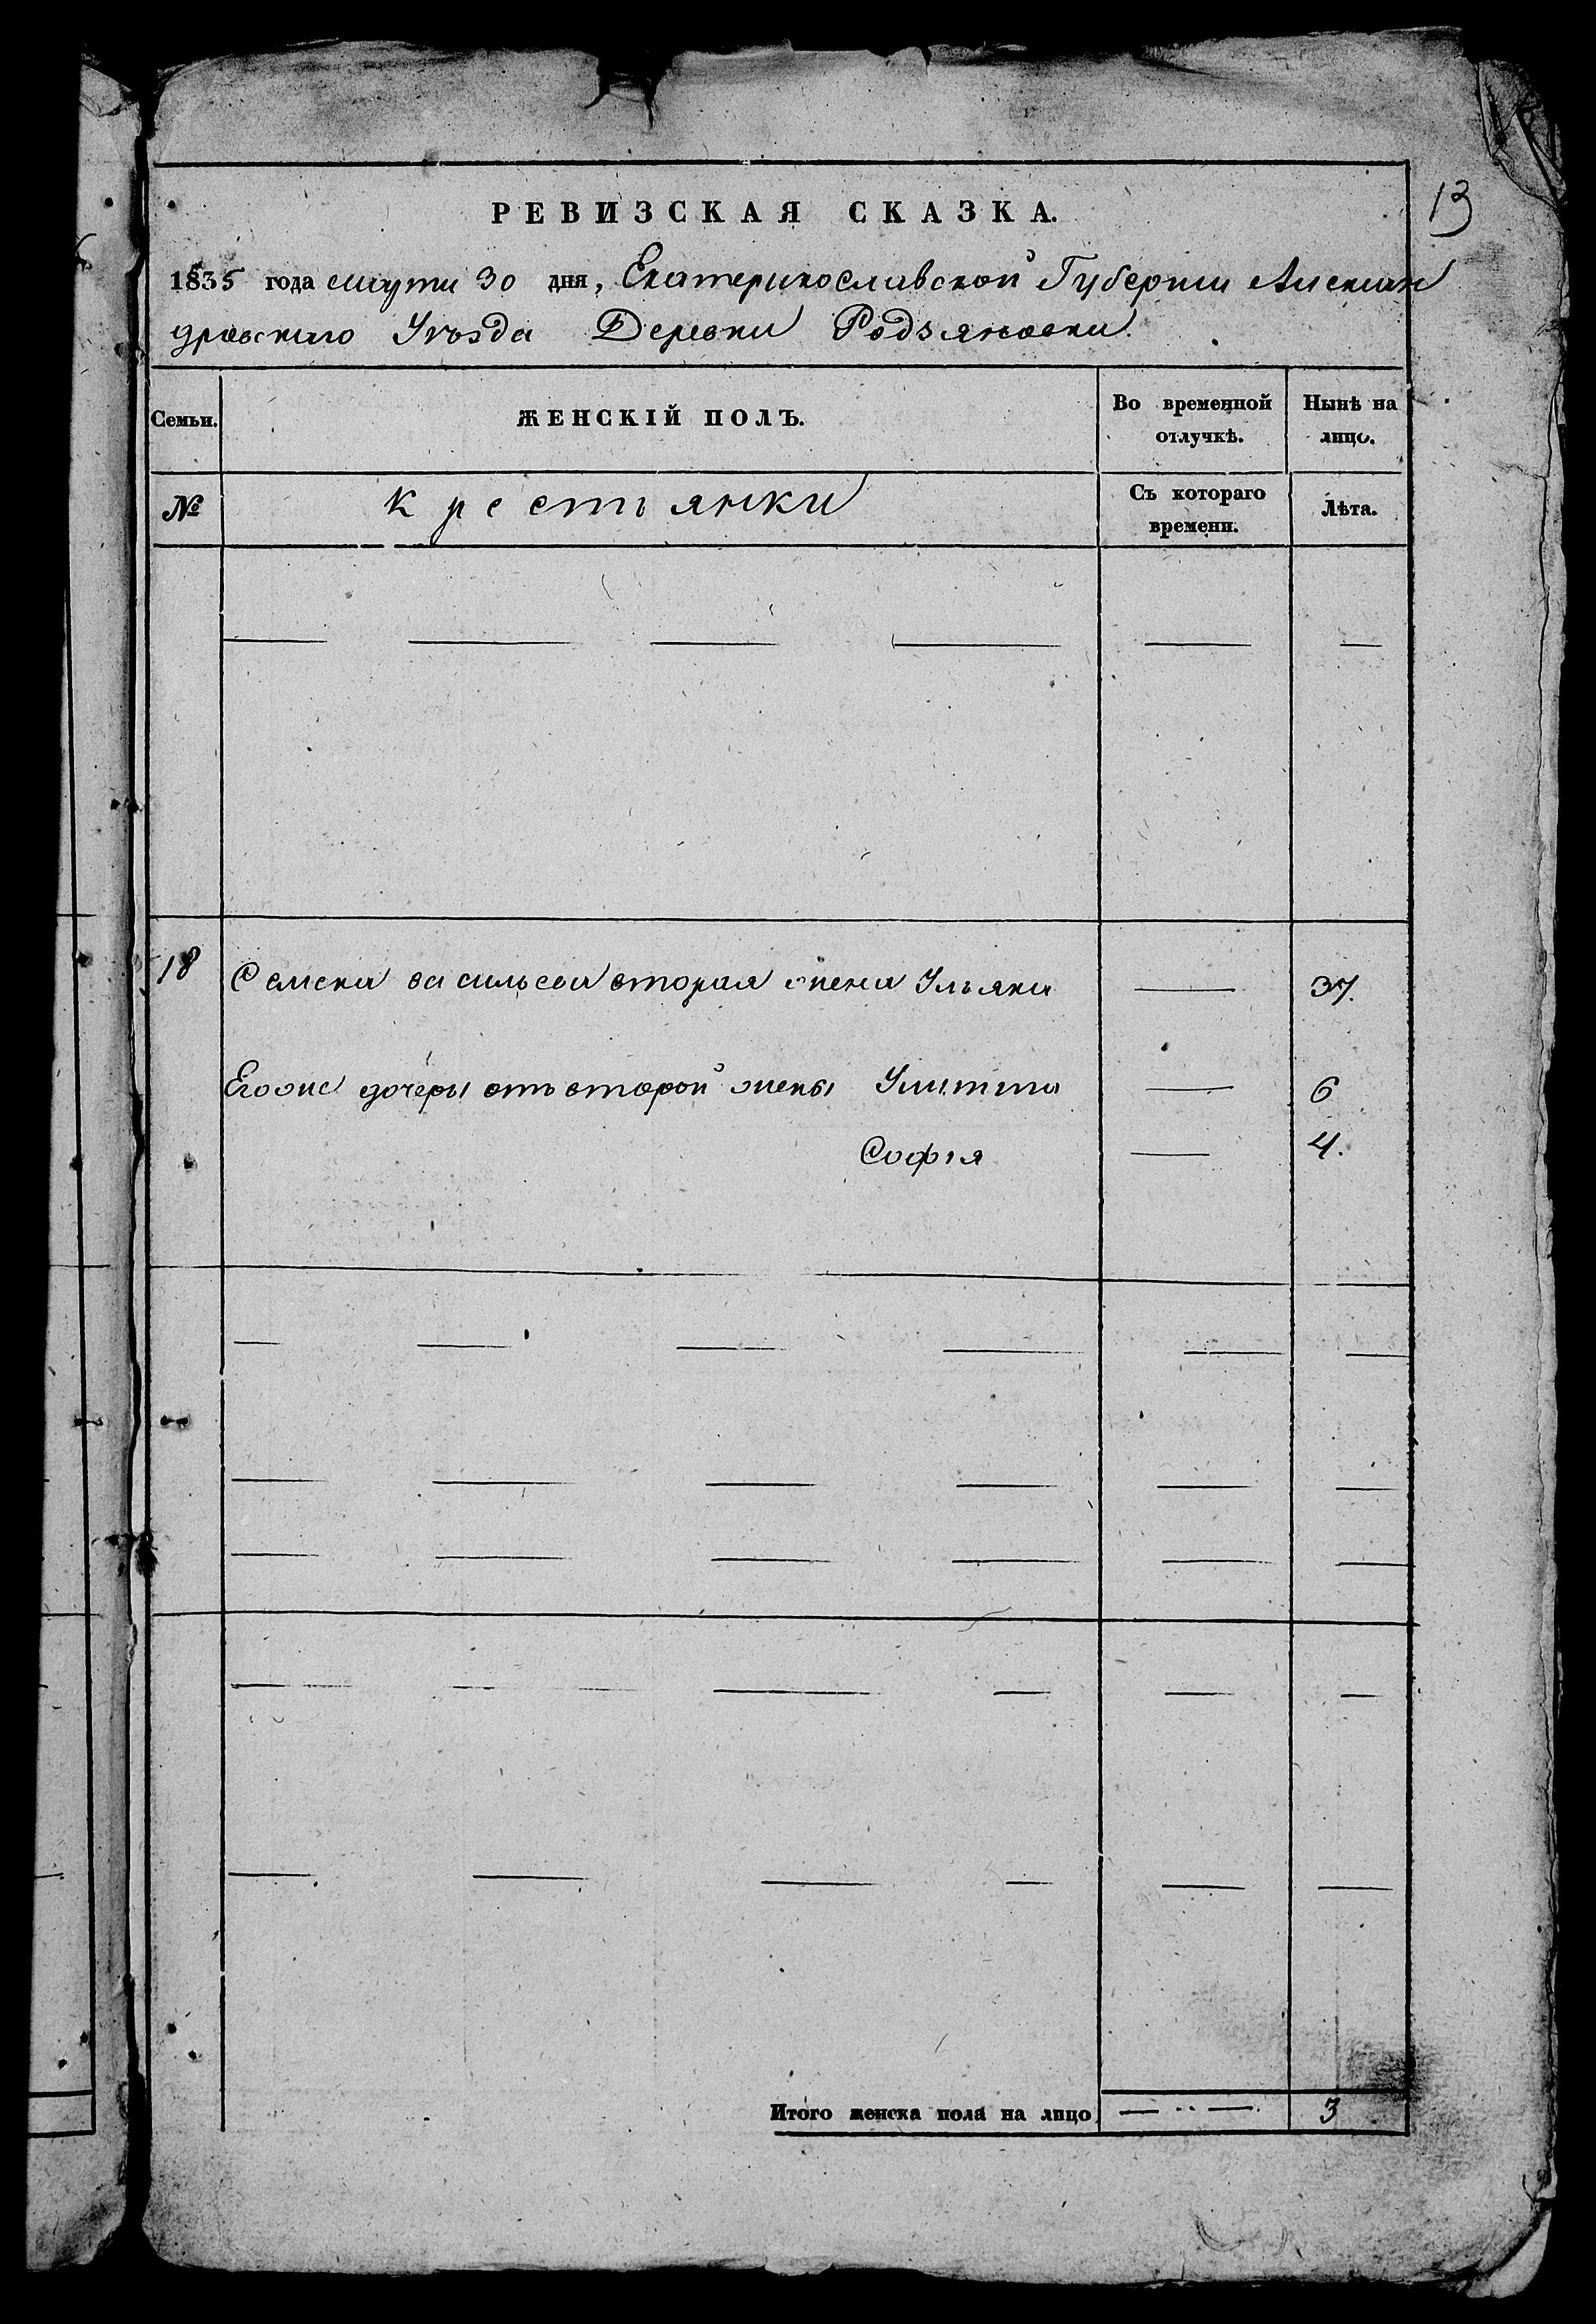 13
РЕВИЗСКАЯ СКАЗКА.
1835 года марта 30 дня, Екатеринославской Губернии Алексан
дровскаго Уѣзда Деревни Родзяновки.
Семьи.
ЖЕНСКІЙ ПОЛЪ.
Во временной
отлучкѣ.
Нынѣ на
лицо.
№
Крестьянки
Съ котораго
времени.
Лѣта.
18 Семена Васильева вторая жена Ульяна 37.
Егоже дочери отъ второй жены Улита 6
Софія 4.
Итого женска пола на лицо 3